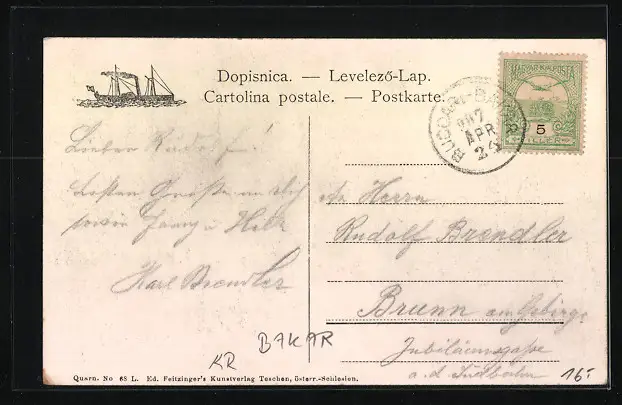 Dopisnica. — Levelező-Lap.
Cartolina postale. — Postkarte.
MAGYAR KIR. POSTA
5
FILLER
BUCCARI-BAKAR
907
APR
24
Lieber Rudolf!
Besten Grüße an Dich
sowie Fanny u
Karl Brendler
Herrn
Rudolf Brendler
Brunn am Gebirge
Jubiläumsgasse
a. d. Südbahn
BAKAR
KR
16.-
Quarn. No 68 L. Ed. Feitzinger's Kunstverlag Teschen, österr.-Schlesien.